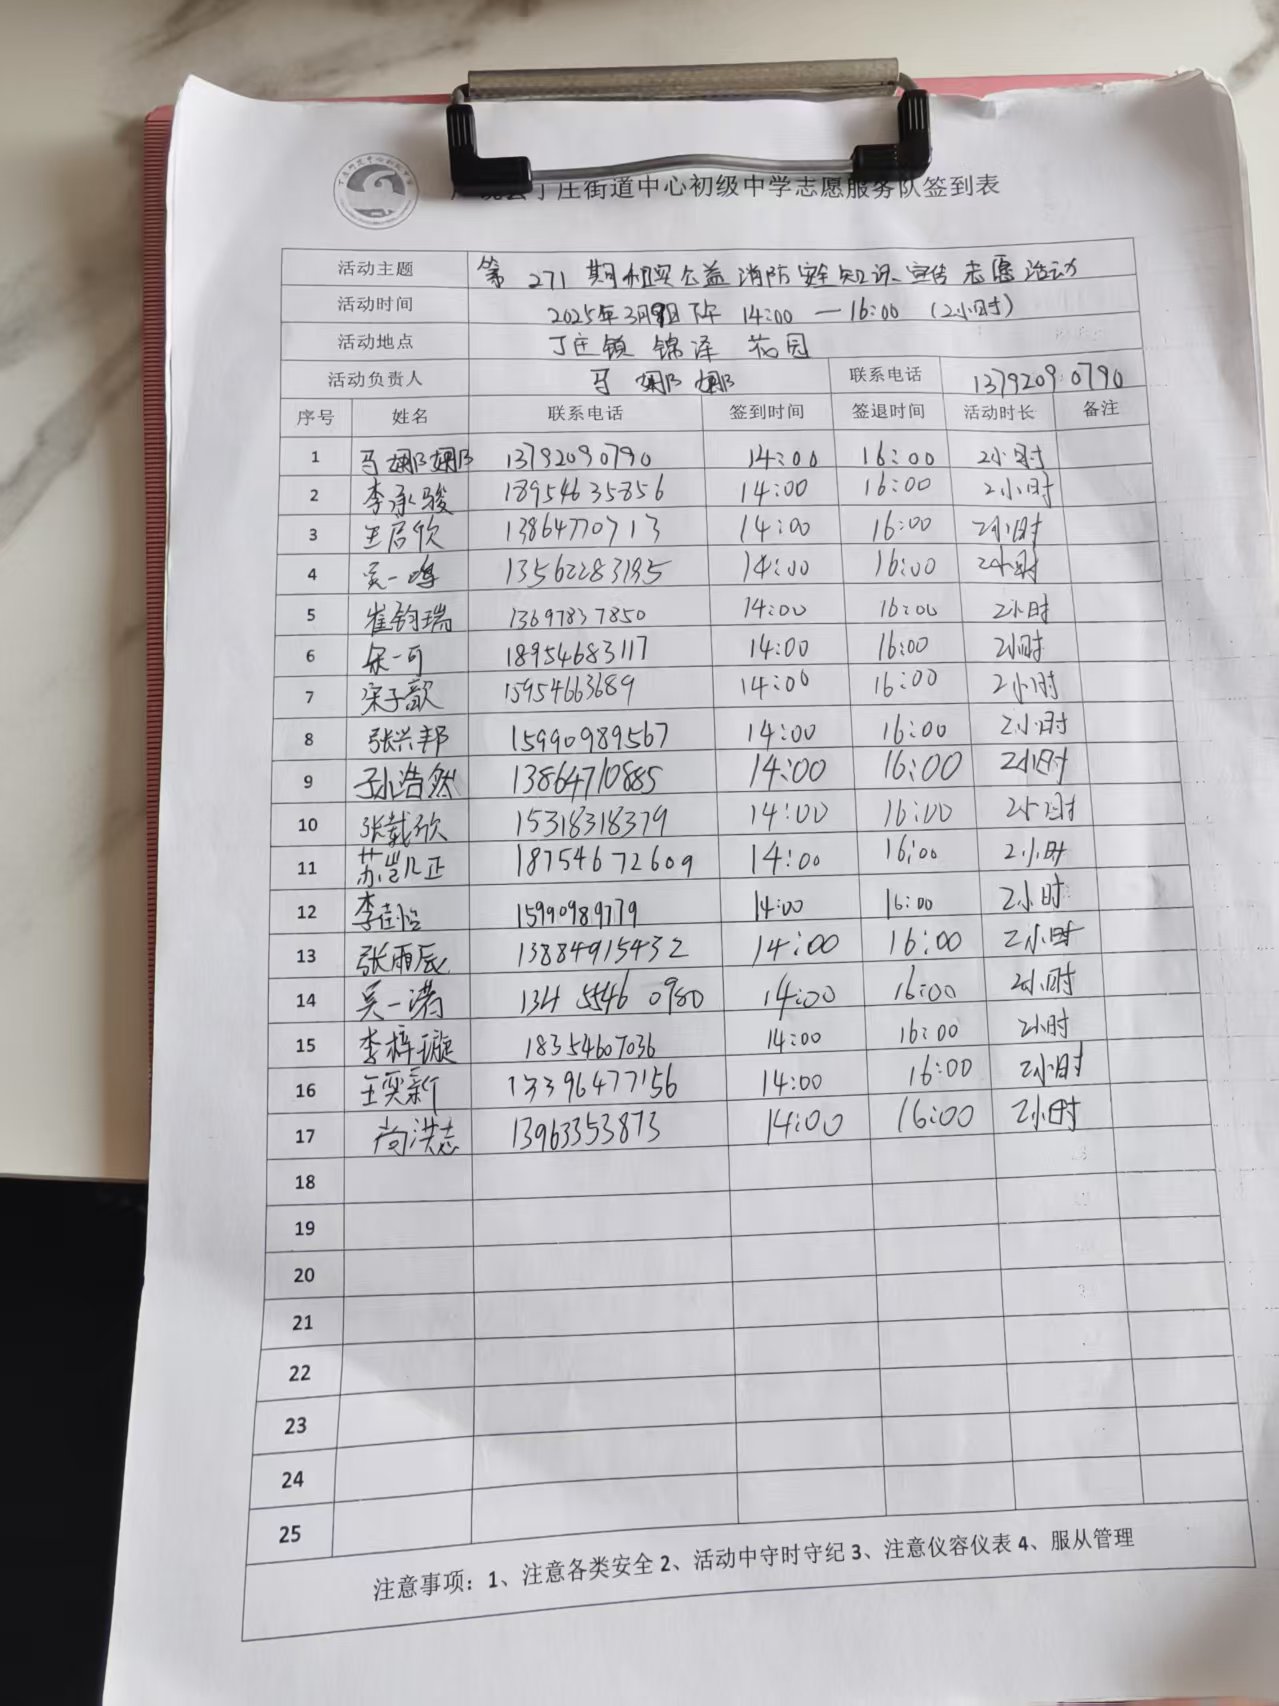 丁庄街道中心初级中学志愿服务队签到表
活动主题 第271期相聚公益消防安全知识宣传志愿活动
活动时间 2025年3月9日下午 14:00—16:00 (2小时)
活动地点 丁庄镇 锦泽 花园
活动负责人 马娜娜 联系电话 13792090790
序号 姓名 联系电话 签到时间 签退时间 活动时长 备注
1 马娜娜 13792090790 14:00 16:00 2小时
2 李承骏 18954635856 14:00 16:00 2小时
3 王启欣 13864770713 14:00 16:00 2小时
4 吴一鸣 13562283195 14:00 16:00 2小时
5 崔钧瑞 13697837850 14:00 16:00 2小时
6 宋一可 18954683117 14:00 16:00 2小时
7 宋子歆 15954663689 14:00 16:00 2小时
8 张兴邦 15990989567 14:00 16:00 2小时
9 孙浩然 13864710885 14:00 16:00 2小时
10 张戴欣 15318318379 14:00 16:00 2小时
11 苏岂凡正 18754672609 14:00 16:00 2小时
12 李佳怡 15990989779 14:00 16:00 2小时
13 张雨辰 13884915432 14:00 16:00 2小时
14 吴一诺 134 5546 0980 14:00 16:00 2小时
15 李梓璇 18354607036 14:00 16:00 2小时
16 王奕新 13396477156 14:00 16:00 2小时
17 尚洪志 13963353873 14:00 16:00 2小时
18
19
20
21
22
23
24
25
注意事项：1、注意各类安全 2、活动中守时守纪 3、注意仪容仪表 4、服从管理